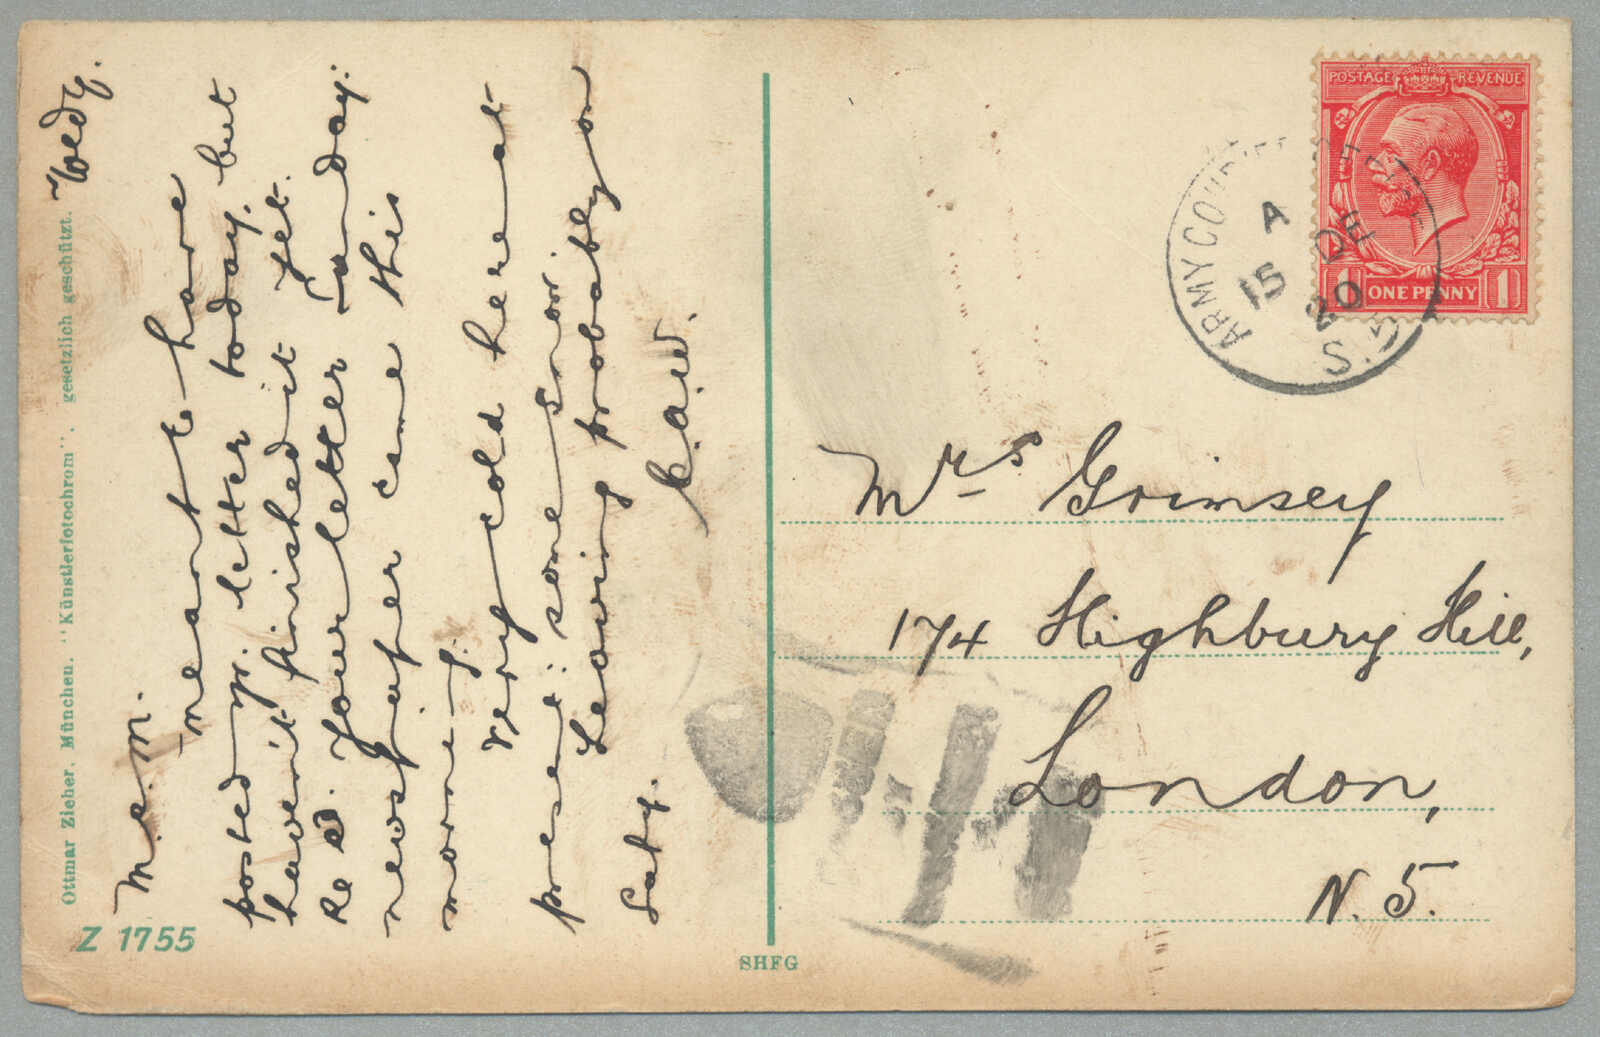 Wedy.
M.e.M.
meant to have
posted yr. letter today. but
havenit finished it yet.
Re c'd. Your letter Sunday:
newspaper came this
morning.
Very cold here at
present: some snow.
Leaving probably on
Saty.
C.A.W.
Ottmar Zieher, München. "Künstlerfotochrom". gesetzlich geschützt.
Z 1755
SHFG
POSTAGE REVENUE
1 ONE PENNY 1
ARMY COURIER OFFICE
A
15 DE
20
S.
Mrs Grimsey
174 Highbury Hill,
London,
N. 5.